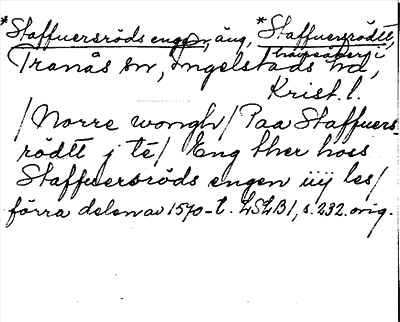 *Staffuersröds engen, äng, *Staffuersrödtt,
hägnäberg i
Tranås sn, Ingelstads hd,
Krist. l.
/Norre wongh/ Paa Staffuers
rödtt j té/ Eng ther hoss
Staffuersröds engen iiij les/
förra delen av 1570-t. LSLB1, s. 232. orig.